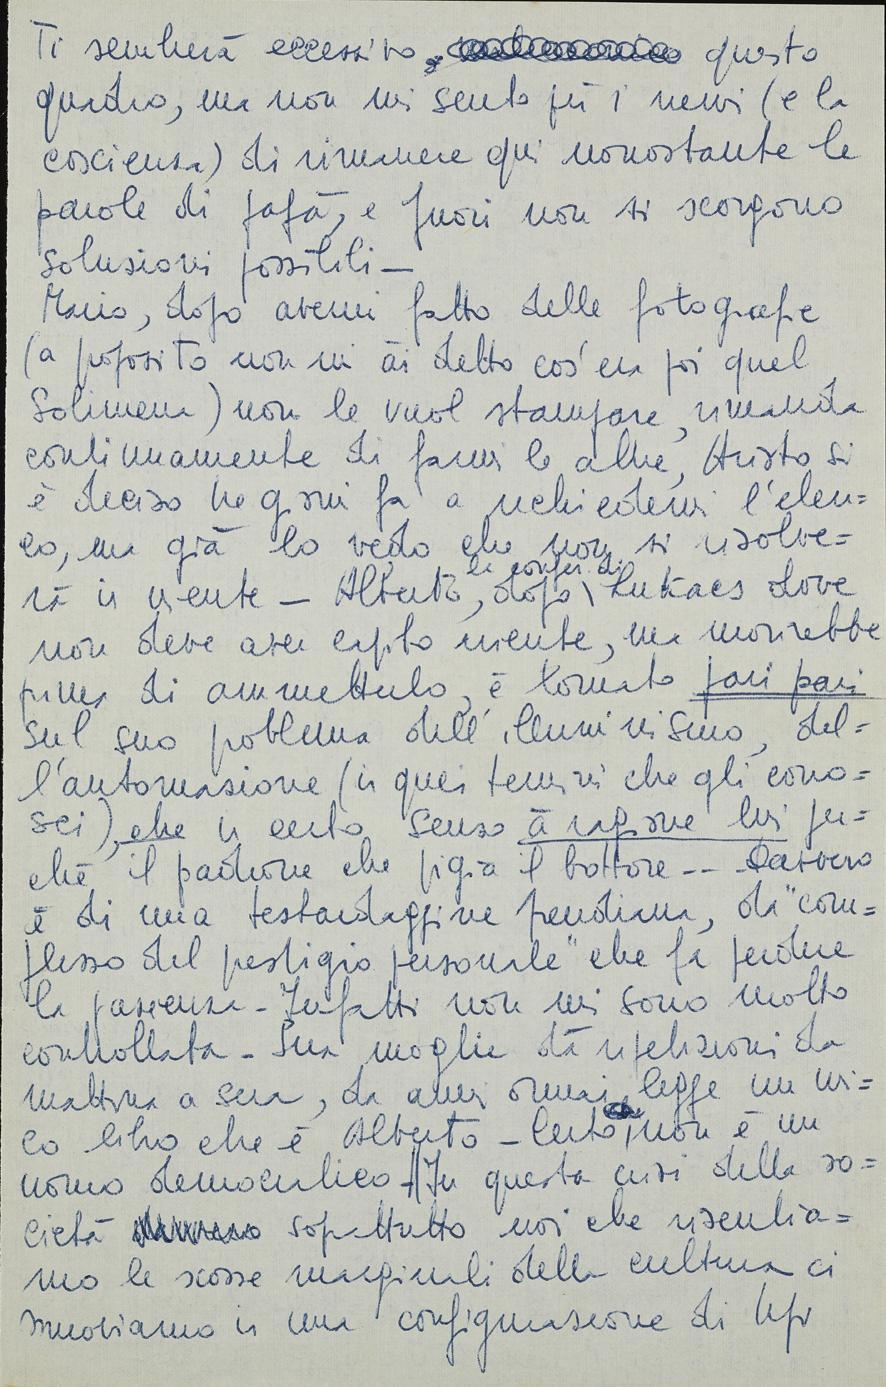 Ti sembrerā eccessivo questo
quadro, ma non mi sento più i nervi (e la
coscienza) di rimanere qui nonostante le
parole di fafā, e fuori non si scorgono
soluzioni possibili —
Mario, dopo avermi fatto delle fotografie
(a proposito non mi ài detto cos'era poi quel
Solimena) non le vuol stampare, rimanda
continuamente di farmi le altre, Aristo si
è deciso tre giorni fa a richiedermi l'elen=
co, ma giā lo vedo che non si risolve=
rā in niente — Alberto, dopo la confer. di Lukacs dove
non deve aver capito niente, ma morirebbe
prima di ammetterlo, è tornato pari pari
sul suo problema dell'illuminismo, del=
l'automazione (in quei termini che gli cono=
sci), che in certo senso ā ragione lui per=
chē il padrone che pigia il bottone -- Davvero
è di una testardaggine freudiana, da "com=
plesso del prestigio personale" che fa perdere
la pazienza - Infatti non mi sono molto
controllata - Sua moglie dā ripetizioni da
mattina a sera, da anni ormai legge un uni=
co libro che è Alberto - Certo, non è un
uomo democratico - // In questa crisi della so=
cietā soprattutto noi che risentia=
mo le scosse marginali della cultura ci
muoviamo in una configurazione di tipi